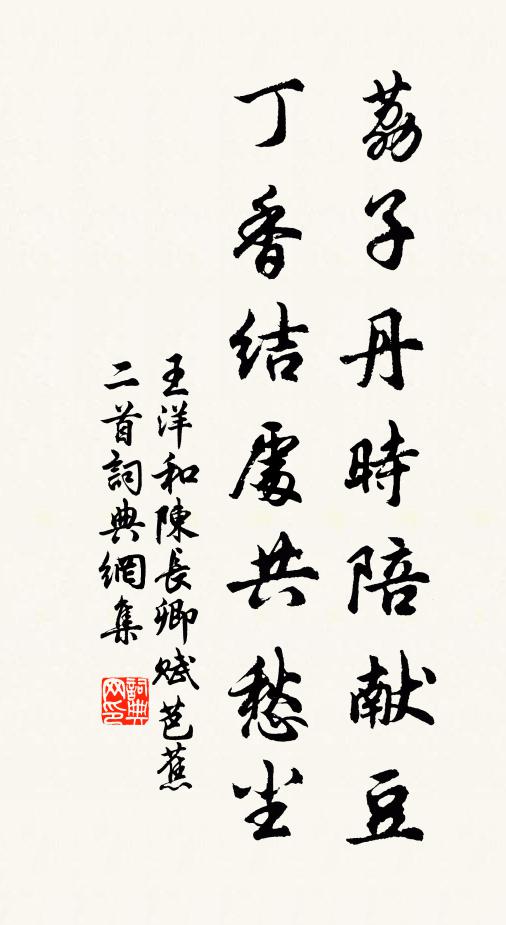 荔子丹時陪献豆
丁香结處共愁尘
王洋和陳長卿赋芭蕉
二首詞典網集
詞典网印